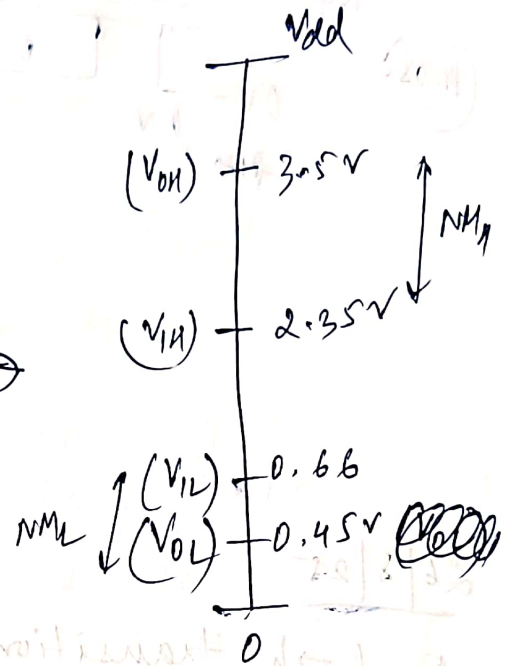 Vdd
(VOH) 3.5V
NMH
(VIH) 2.35V
(VIL) 0.66
NML (VOL) 0.45V
0